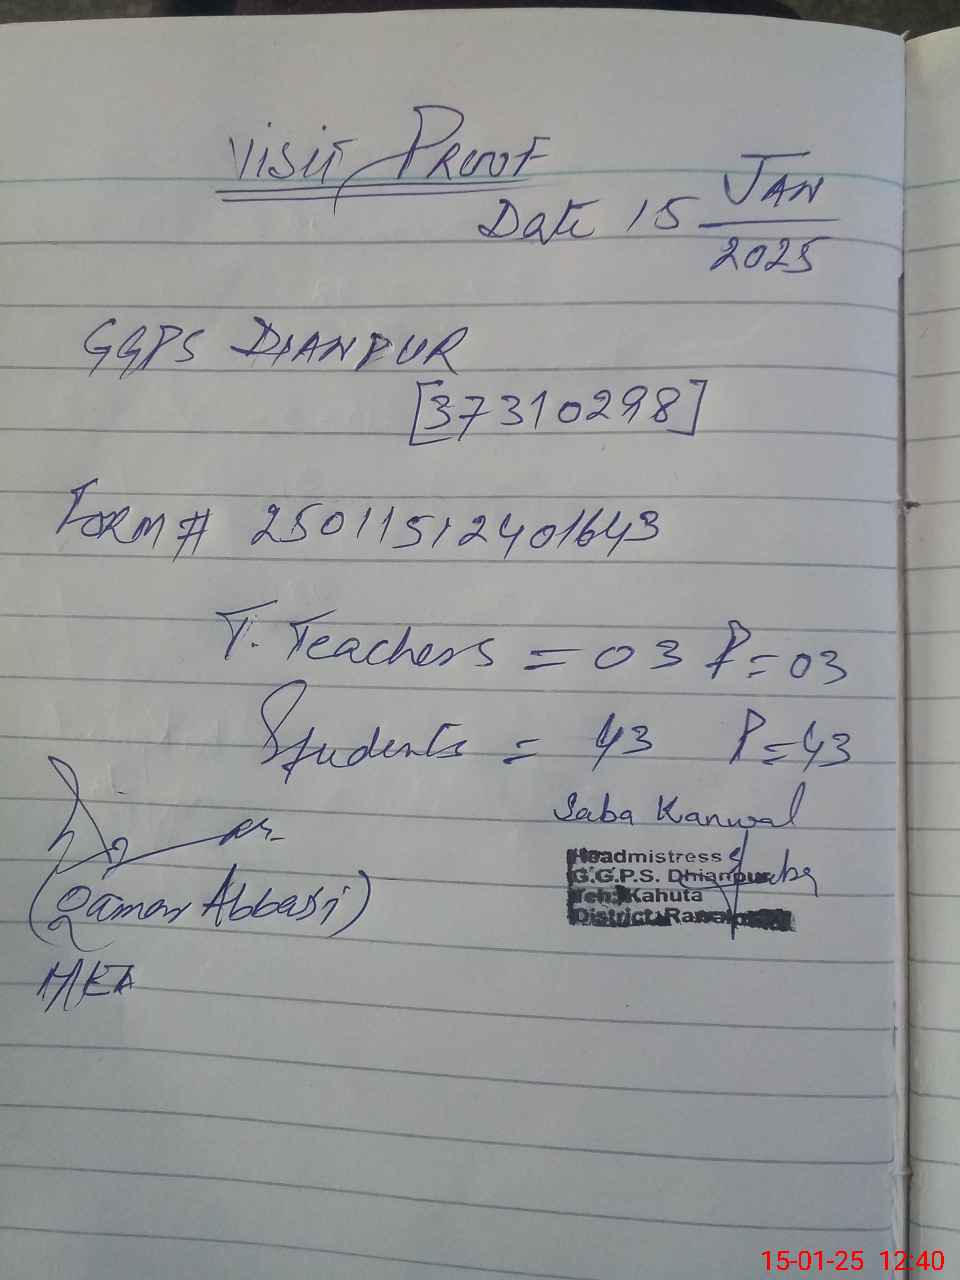 VISIT PROOF
Date 15 JAN
2025
GGPS DIANPUR
[37310298]
FORM # 25011512401643
T. Teachers = 03 P = 03
Students = 43 P = 43
Saba Kanwal
Headmistress
G.G.P.S. Dhianpur
Teh: Kahuta
District: Rawalpindi
Saba
(Qamar Abbasi)
MEA
15-01-25 12:40